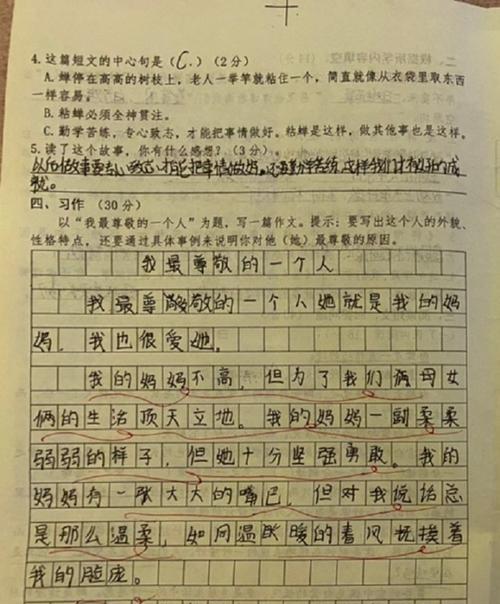 4.这篇短文的中心句是(C.)(2分)
A.蝉停在高高的树枝上，老人一举竿就粘住一个，简直就像从衣袋里取东西
一样容易。
B.粘蝉必须全神贯注。
C.勤学苦练，专心致志，才能把事情做好。粘蝉是这样，做其他事也是这样。
5.读了这个故事，你有什么感想？(3分)。
以后做事要专心致志，才能把事情做好。还要勤学苦练，这样我们才有好的成
就。
四、习作 (30分)
以“我最尊敬的一个人”为题，写一篇作文。提示：要写出这个人的外貌、
性格特点，还要通过具体事例来说明你对他（她）最尊敬的原因。
我最尊敬的一个人
我最尊敬的一个人她就是我的妈
妈，我也很爱她。
我的妈妈不高，但为了我们俩母女
俩的生活顶天立地。我的妈妈一副柔柔
弱弱的样子，但她十分坚强勇敢。我的
妈妈有一张大大的嘴巴，但对我说话总
是那么温柔，如同温暖的春风抚挨着
我的脸庞。